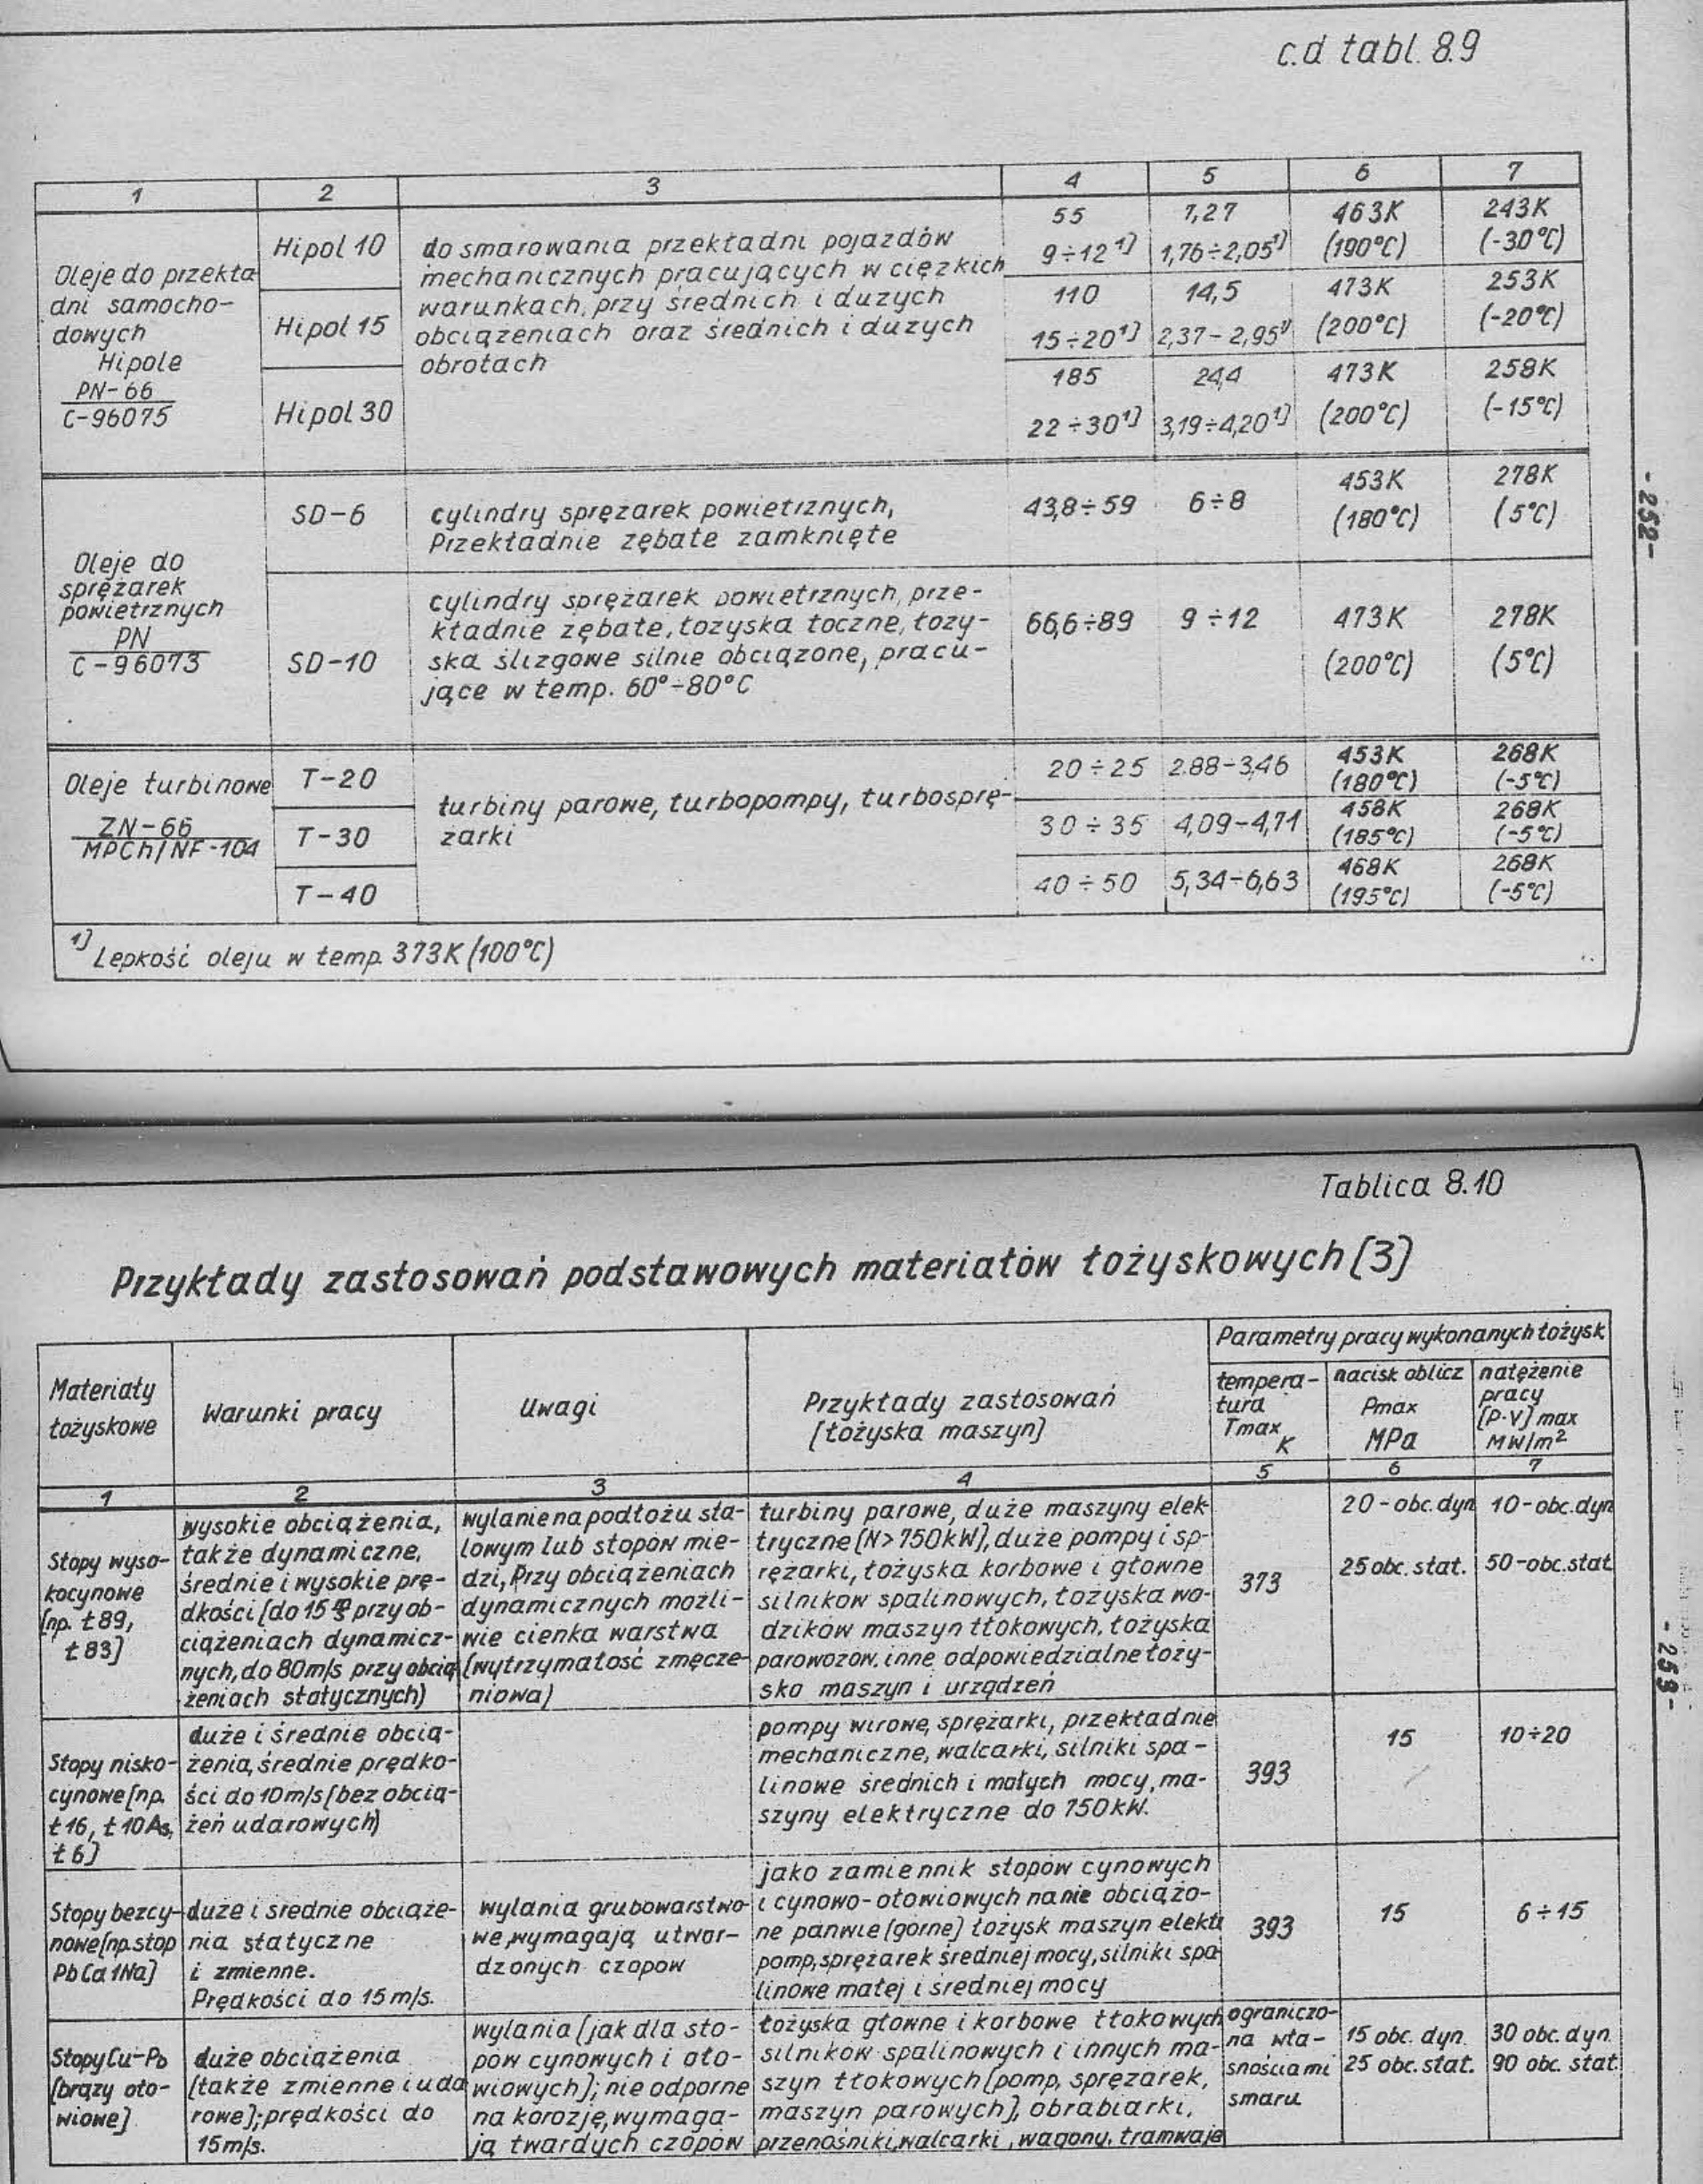 c.d tabl. 8.9
1 2 3 4 5 6 7
Oleje do przekła
dni samocho-
dowych
Hipole
PN-66
C-96075
Hipol 10
Hipol 15
Hipol 30
do smarowania przekładni pojazdów
mechanicznych pracujących w ciężkich
warunkach, przy średnich i dużych
obciążeniach oraz średnich i dużych
obrotach
55 7,27 463K 243K
9÷12 1) 1,76÷2,05 1) (190°C) (-30°C)
110 14,5 473K 253K
15÷20 1) 2,37-2,95 1) (200°C) (-20°C)
185 24,4 473K 258K
22÷30 1) 3,19÷4,20 1) (200°C) (-15°C)
Oleje do
sprężarek
powietrznych
PN
C-96073
SD-6
cylindry sprężarek powietrznych,
Przekładnie zębate zamknięte
43,8÷59 6÷8 453K 278K
(180°C) (5°C)
SD-10
cylindry sprężarek powietrznych, prze-
kładnie zębate, łożyska toczne, łoży-
ska ślizgowe silnie obciążone, pracu-
jące w temp. 60°-80°C
66,6÷89 9÷12 473K 278K
(200°C) (5°C)
Oleje turbinowe
ZN-66
MPCh/NF-104
T-20
T-30
T-40
turbiny parowe, turbopompy, turbosprę-
żarki
20÷25 2.88-3,46 453K 268K
(180°C) (-5°C)
30÷35 4,09-4,71 458K 268K
(185°C) (-5°C)
40÷50 5,34-6,63 468K 268K
(195°C) (-5°C)
1) Lepkość oleju w temp. 373K (100°C)
-252-
Tablica 8.10
Przykłady zastosowań podstawowych materiałów łożyskowych [3]
Materiały
łożyskowe
Warunki pracy
Uwagi
Przykłady zastosowań
[łożyska maszyn]
Parametry pracy wykonanych łożysk
tempera-
tura
Tmax
K
nacisk oblicz
Pmax
MPa
natężenie
pracy
[P·V] max
MW/m²
1 2 3 4 5 6 7
Stopy wyso-
kocynowe
[np. Ł89,
Ł83]
wysokie obciążenia,
także dynamiczne,
średnie i wysokie prę-
dkości [do 15 m/s przy ob-
ciążeniach dynamicz-
nych, do 80m/s przy obcią
żeniach statycznych)
wylanie na podłożu sta-
lowym lub stopów mie-
dzi, Przy obciążeniach
dynamicznych możli-
wie cienka warstwa
(wytrzymałość zmęcze-
niowa)
turbiny parowe, duże maszyny elek-
tryczne [N>750kW], duże pompy i sp-
rężarki, łożyska korbowe i główne
silników spalinowych, łożyska wo-
dzików maszyn tłokowych, łożyska
parowozów. inne odpowiedzialne łoży-
ska maszyn i urządzeń
373
20-obc.dyn
25 obc. stat.
10-obc.dyn
50-obc.stat
Stopy nisko-
cynowe [np.
Ł16, Ł10As,
Ł6]
duże i średnie obcią-
żenia, średnie prędko-
ści do 10m/s [bez obcią-
żeń udarowych)
pompy wirowe, sprężarki, przekładnie
mechaniczne, walcarki, silniki spa-
linowe średnich i małych mocy, ma-
szyny elektryczne do 750kW.
393
15
10÷20
Stopy bezcy-
nowe [np. stop
PbCa1Na]
duże i średnie obciąże-
nia statyczne
i zmienne.
Prędkości do 15 m/s.
wylania grubowarstwo-
we, wymagają utwar-
dzonych czopów
jako zamiennik stopów cynowych
i cynowo-ołowiowych na nie obciążo-
ne panwie [górne] łożysk maszyn elektr
pomp, sprężarek średniej mocy, silniki spa
linowe małej i średniej mocy
393
15
6÷15
Stopy Cu-Pb
[brązy oło-
wiowe]
duże obciążenia
[także zmienne i uda
rowe]; prędkości do
15m/s.
wylania [jak dla sto-
pów cynowych i oło-
wiowych]; nie odporne
na korozję, wymaga-
ją twardych czopów
łożyska główne i korbowe tłokowych
silników spalinowych i innych ma-
szyn tłokowych [pomp, sprężarek,
maszyn parowych], obrabiarki,
przenośniki, walcarki, wagony, tramwaje
ograniczo-
na wła-
snościami
smaru
15 obc. dyn.
25 obc. stat.
30 obc. dyn.
90 obc. stat.
-253-